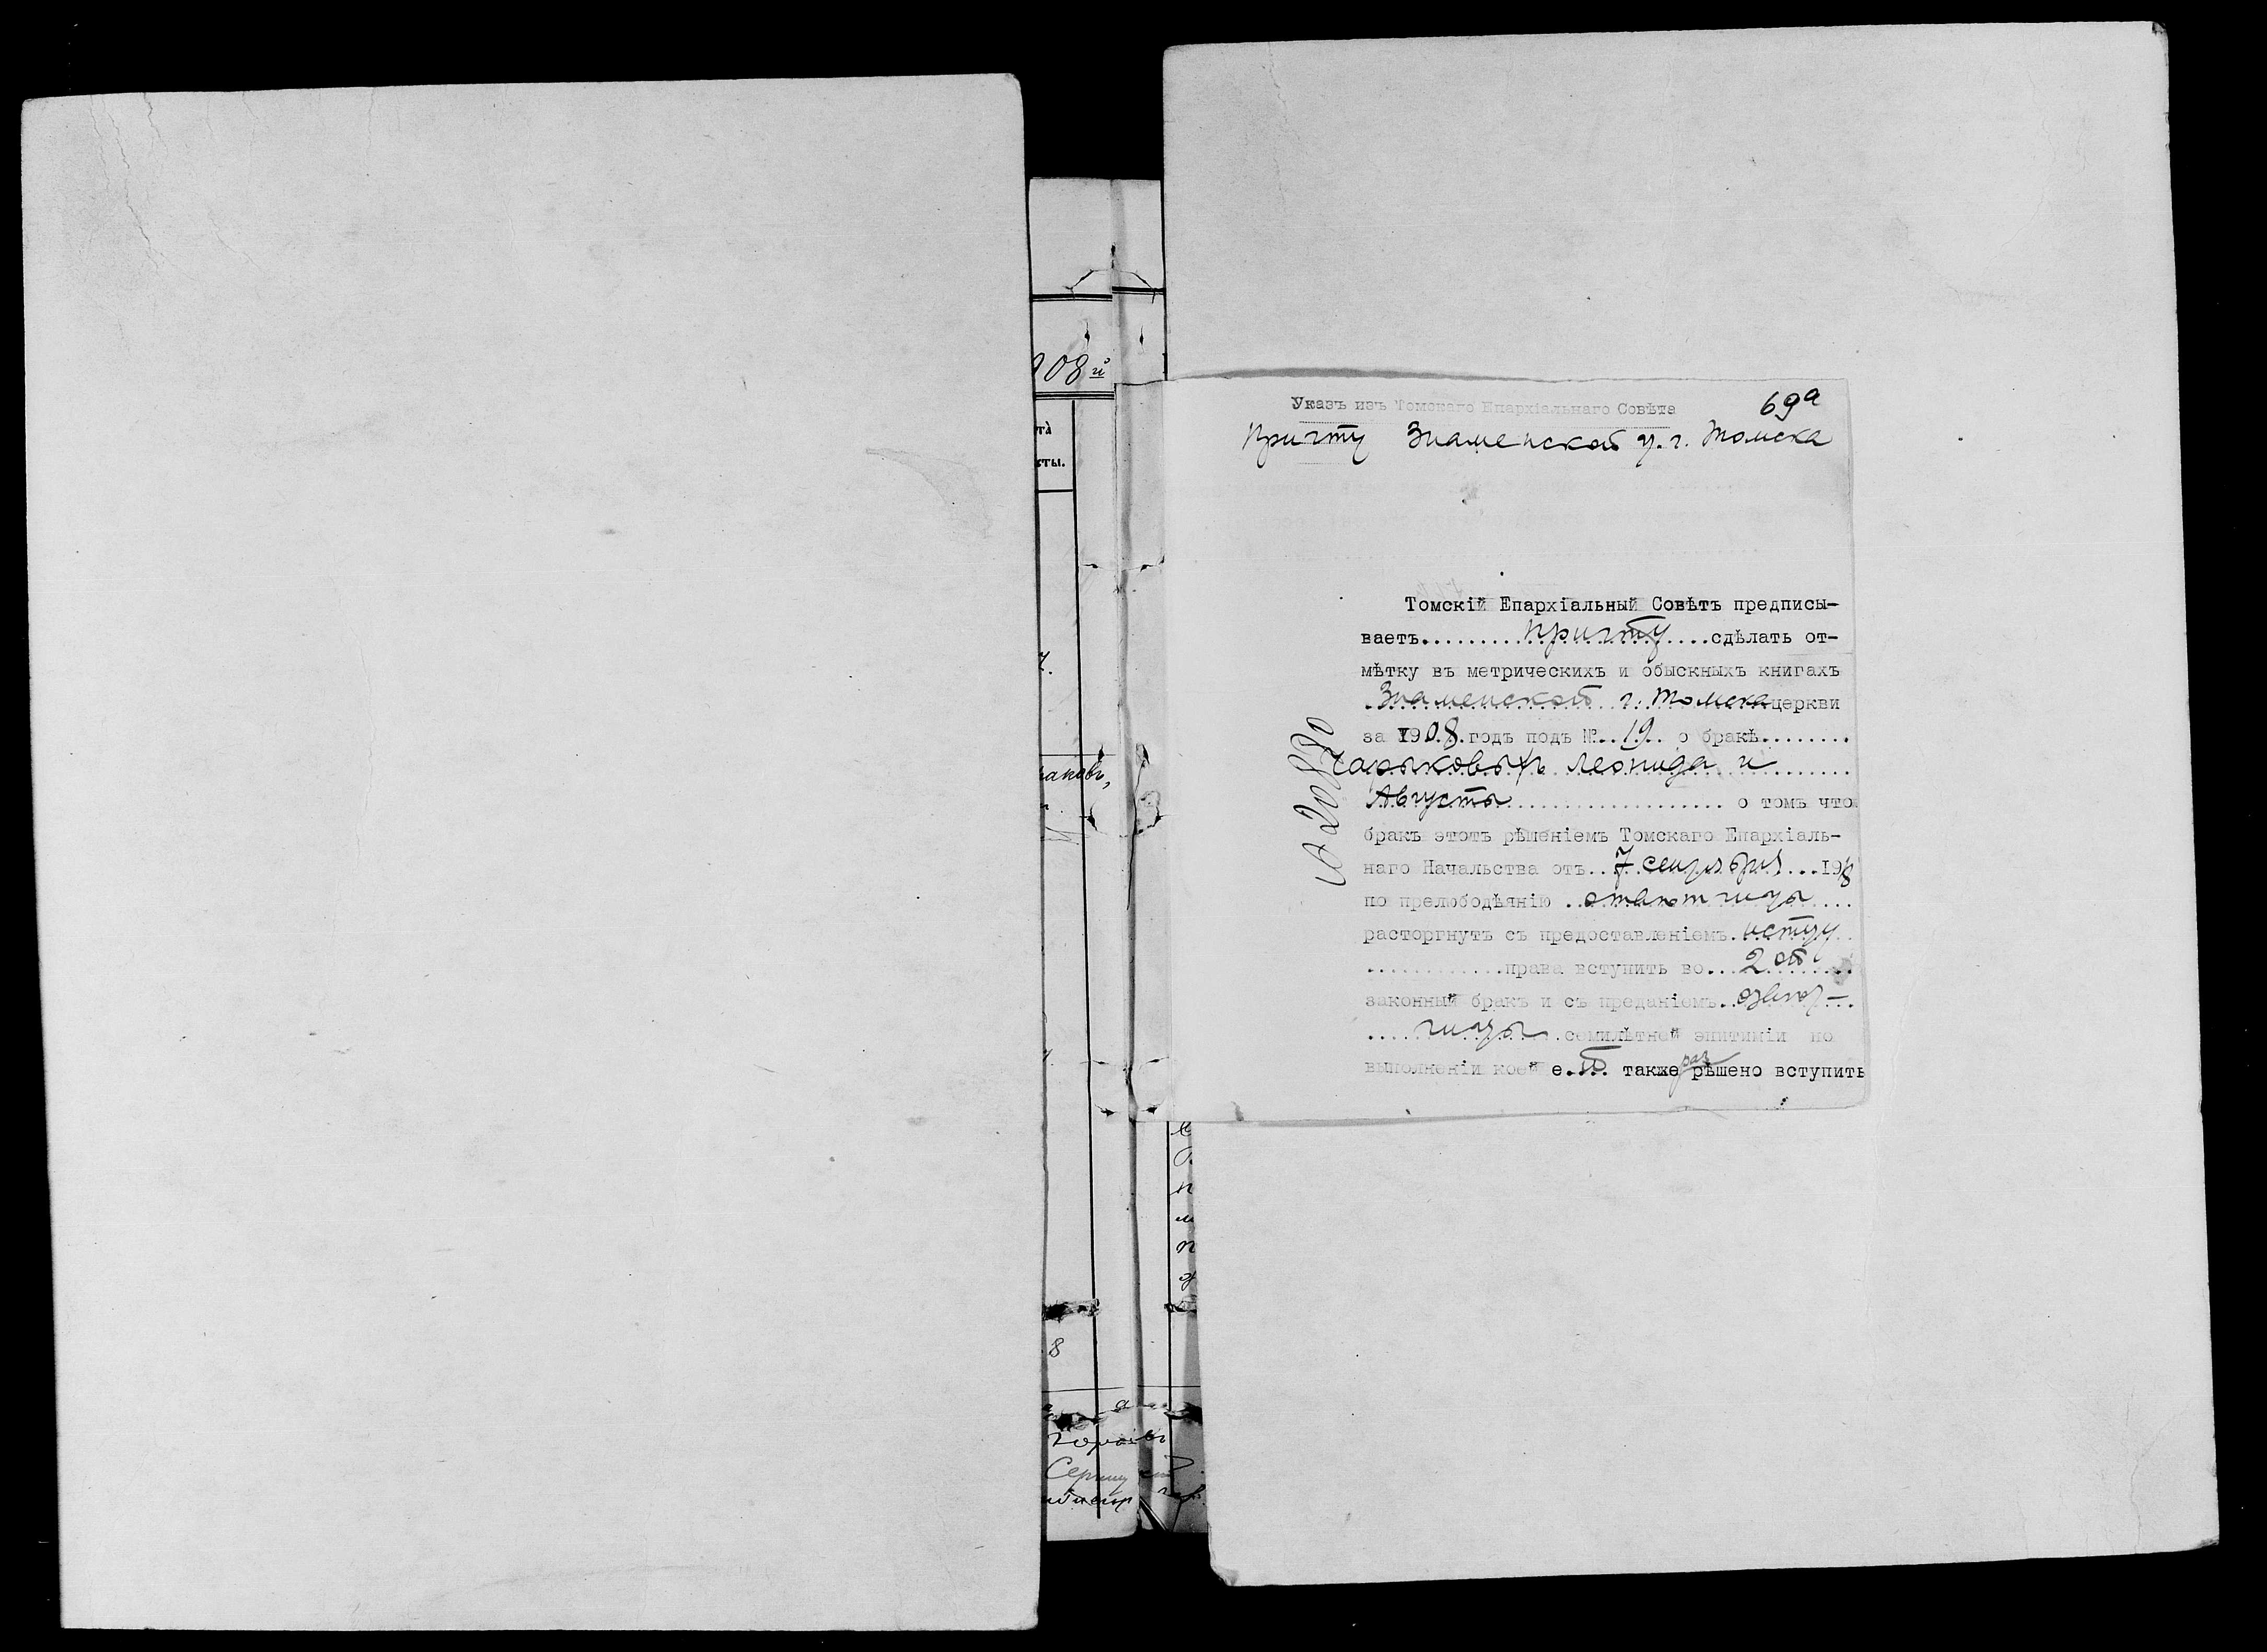 908й
та
кты.
аковъ,
8
69а
Указъ изъ Томскаго Епархіальнаго Совѣта
Причту Знаменской ц. г. Томска
Томскій Епархіальный Совѣтъ предписы-
ваетъ.........причту....сдѣлать от-
мѣтку въ метрическихъ и обыскныхъ книгахъ
Знаменской г. Томска церкви
за 1908 годъ подъ №..19.. о бракѣ........
Чарыковыхъ Леонида и
Августы .................... о томъ что
бракъ этотъ рѣшеніемъ Томскаго Епархіаль-
наго Начальства отъ..7 сентября...19
по прелюбодѣянію ..отвѣтчицы
расторгнутъ съ предоставленіемъ.истцу
............права вступить во...2ой
законный бракъ и съ преданіемъ..отвѣт-
....чицы семилѣтней эпитиміи по
выполненіи коей е..й.. также разрѣшено вступить